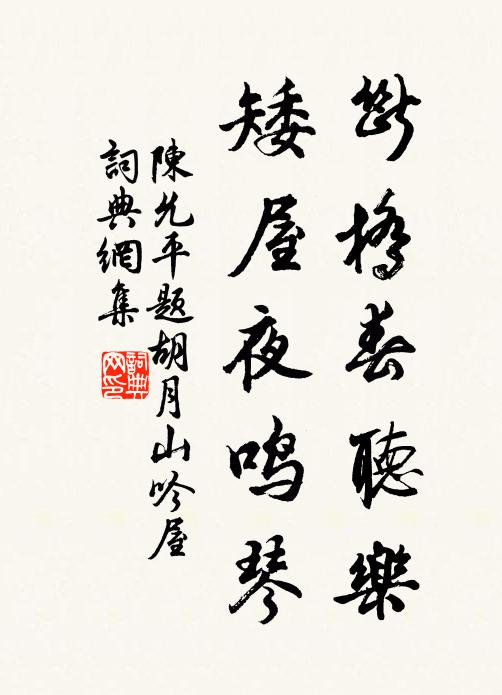 斷橋春聽樂
矮屋夜鳴琴
陳允平題胡月山吟屋
詞典網集
詞典网印